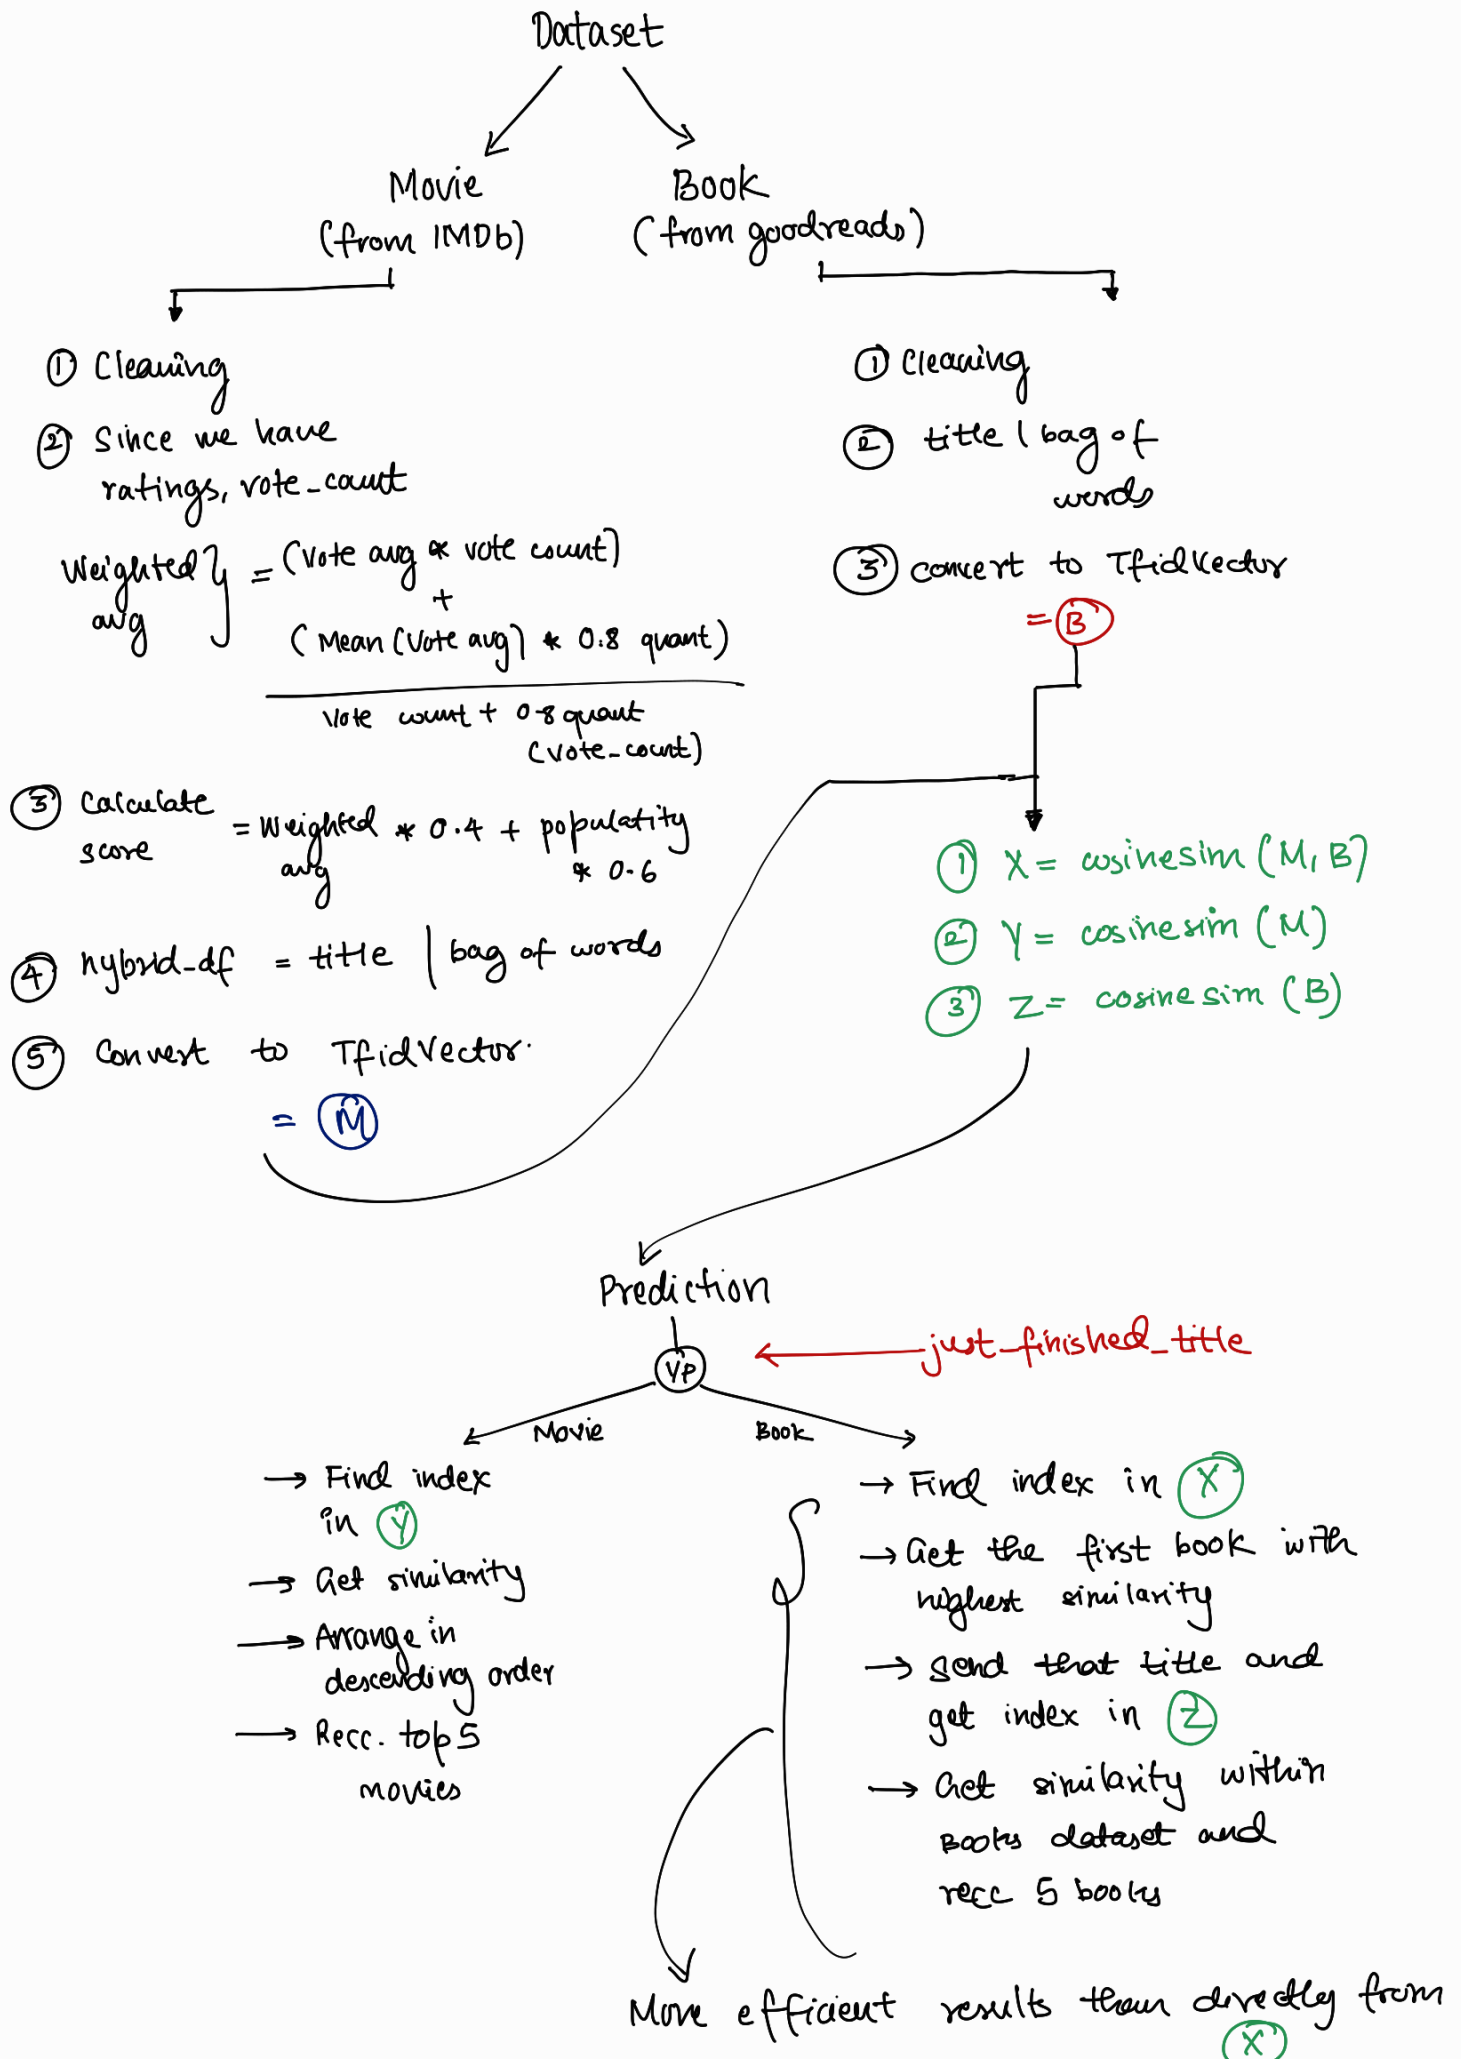 Dataset
Movie
(from IMDb)
Book
(from goodreads)
① Cleaning
② Since we have
ratings, vote_count
Weighted
avg } = (Vote avg * vote count)
+
(Mean (Vote avg) * 0.8 quant)
Vote count + 0.8 quant
(vote_count)
③ Calculate
score = Weighted
avg * 0.4 + populatity
* 0.6
④ hybrid_df = title | bag of words
⑤ Convert to TfidVector.
= M
① Cleaning
② title | bag of
words
③ convert to TfidVector
= B
① X = cosinesim (M, B)
② Y = cosinesim (M)
③ Z = cosinesim (B)
Prediction
just_finished_title
Movie
Book
→ Find index
in Y
→ Get similarity
→ Arrange in
descending order
→ Recc. top 5
movies
→ Find index in X
→ Get the first book with
highest similarity
→ Send that title and
get index in Z
→ Get similarity within
Books dataset and
recc 5 books
More efficient results than directly from
X